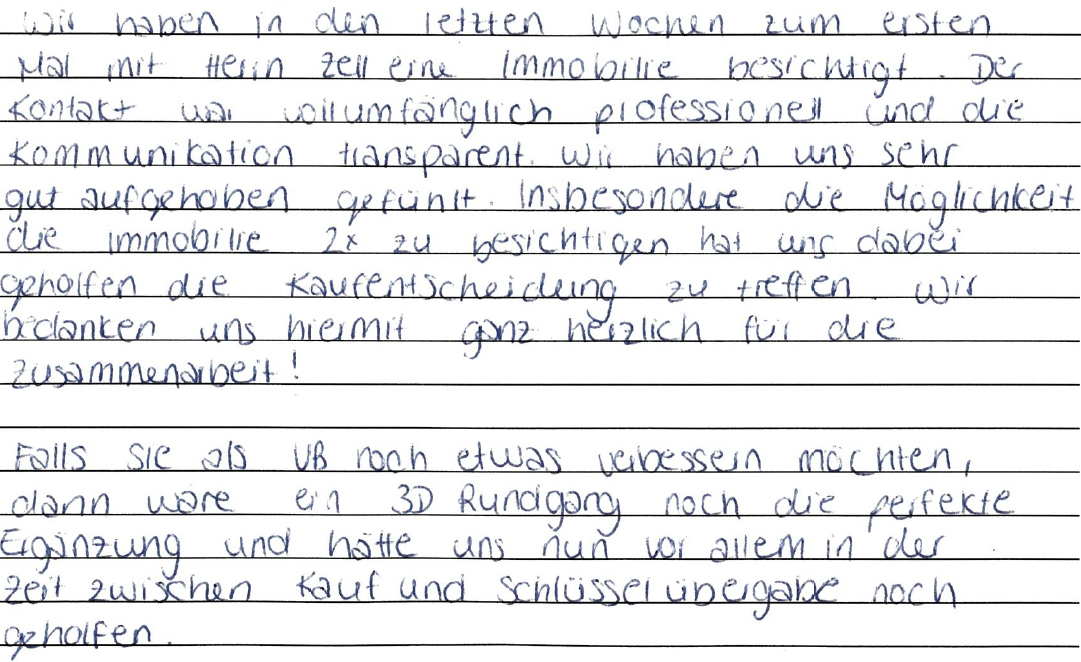 Wir haben in den letzten Wochen zum ersten
Mal mit Herrn Zell eine Immobilie besichtigt. Der
Kontakt war vollumfänglich professionell und die
Kommunikation transparent. Wir haben uns sehr
gut aufgehoben gefühlt. Insbesondere die Möglichkeit
die Immobilie 2x zu besichtigen hat uns dabei
geholfen die Kaufentscheidung zu treffen. Wir
bedanken uns hiermit ganz herzlich für die
Zusammenarbeit!
Falls Sie als VB noch etwas verbessern möchten,
dann wäre ein 3D Rundgang noch die perfekte
Ergänzung und hätte uns nun vor allem in der
Zeit zwischen Kauf und Schlüsselübergabe noch
geholfen.